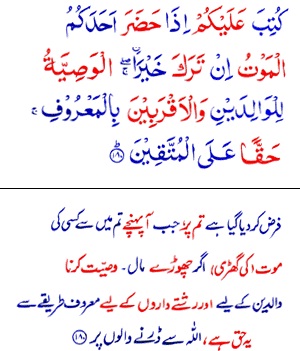 كُتِبَ عَلَيْكُمْ اِذَا حَضَرَ اَحَدَكُمُ
الْمَوْتُ اِنْ تَرَكَ خَيْرَا ۖۚ الْوَصِيَّةُ
لِلْوَالِدَيْنِ وَالْاَقْرَبِيْنَ بِالْمَعْرُوْفِ ۚ
حَقًّا عَلَى الْمُتَّقِيْنَ ﴿۱۸۰﴾ؕ
فرض کردیا گیا ہے تم پر، جب آپہنچے تم میں سے کسی کی
موت (کی گھڑی) اگر چھوڑے مال۔ وصیّت کرنا
والدین کے لیے اور رشتے داروں کے لیے معروف طریقے سے
یہ حق ہے، اللہ سے ڈرنے والوں پر ﴿۱۸۰﴾